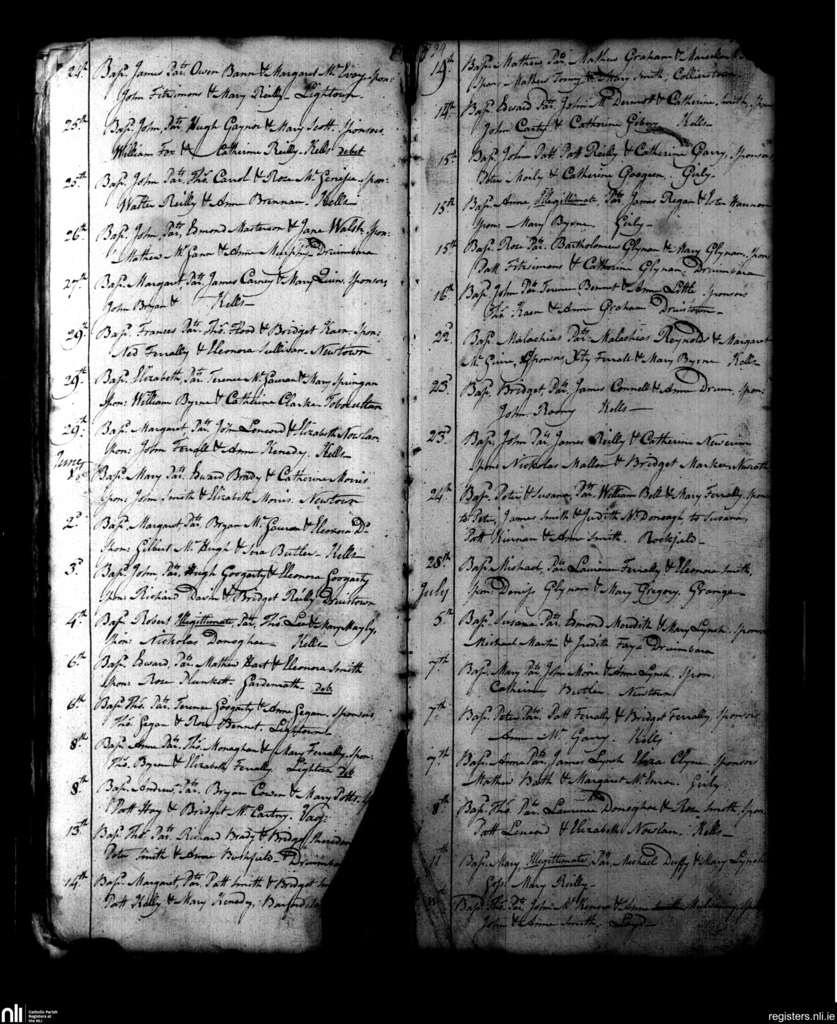 24th Bapd James Par: Owen Bann & Margaret McEvoy spon:
John Fitzsimons & Mary Reilly - Lightown
25th Bapd John, Par: Hugh Gaynor & Mary Scott. Sponsors
William Fox & Catherine Reilly - Kells debet
25th Bapd John Par: Thos Carrol & Rose Spon:
Walter Reilly & Anne Brennan. Kells
26th Bapd John, Par: Esmond Masterson & Jane Walsh, Spon:
Mathew McGann & Anne Murphy - Drumbara
27th Bapd Margaret, Par: James Carney & Mary Quin. Sponsors
John Bryan & Kells -
29th Bapd Frances Par: Thos Flood & Bridget Kearn, Spon:
Ned Ferrally & Eleonora Sullivan. Newtown
29th Bapd Elizabeth, Par: Terence McGauran & Mary Springan
Spon: William Byrne & Catherine Clarke
29th Bapd Margaret, Par: John Lencord & Elizabeth Nowlan
Spon: John Ferrall & Anne Kenedy. Kells
June
Bapd Mary Par: Edward Brady & Catherine Morris
Spon: John Smith & Elizabeth Morris. Newtown
2d Bapd Margaret Par: Bryan McGauran & Eleonora Do
Spon: Gilbert McHugh & Butler - Kells
3d Bapd John Par: Hugh Googarty & Eleonora Googarty
Spon: Richard & Bridget Reilly - Druistown
4th Bapd Robert Illegittimate, Par: Thos Lee & Mary
Spon: Nicholas Donoghoe - Kells
6th Bapd Edward, Par: Mathew Hart & Eleonora Smith
Spon: Rose Plunkett Gardenrath - Deb
6th Bapd Thos Par: Terence Googarty & Anne Gegan. Sponsors
Thos Gegan & Rose Bennet. Lightown
8th Bapd Anne Par: Thos Monaghan & Mary Ferrally, Spon:
Thos Byrne & Elizabeth Ferrally. Deb
8th Bapd Andrew, Par: Bryan Cowen & Mary Potts,
Patt Hoey & Bridget McCartny. Vag:
13th Bapd Thos Par: Richard Brady & Bridget Sheridan
Peter Smith & Anne
14th Bapd Margaret, Par: Patt Smith & Bridget
Patt Kelly & Mary Kenedy,
14th Bapd Mathew Par: Mathew Graham &
Spon: Mathew & Mary Smith, Collierstown
14th Bapd Edward Par: John McDermot & Catherine Smith, Spon
John Carty & Catherine Kells -
15th Bapd John Patt Patt Reilly & Catherine Garry, Sponsors
Peter & Catherine Googeen. Girly -
15th Bapd Anne, Illegittimate, Par: James Regan &
Spon: Mary Byrne. Girly -
15th Bapd Rose Par: Bartholomew Glynan & Mary Glynan, spon
Patt Fitzsimons & Catherine Glynan. Drumbara
16th Bapd John Par: Terence Bennet & Anne Little Sponsors
Thos Kearn & Anne Graham Druistown -
22d Bapd Malachias Par: Malachias Reynolds & Margaret
Sponsors Ferrall & Mary Byrne Kells -
23d Bapd Bridget, Par: James Connell & Anne Drum. Spon:
John Kells -
23d Bapd John Par: James Reilly & Catherine
Spon: Nicholas Mallon & Bridget
24th Bapd Peter & Susana, Par: William Bell & Mary Ferrally, spon
to Peter, James Smith & Judith McDonogh to Susana,
Patt Kiernan & Anne Smith. Rockfield -
28th Bapd Michael, Par: Laurence Ferrally & Eleonora Smith,
Spon: Denis Glynan & Mary Gregory. Grangea
July
5th Bapd Susana Par: Esmond Meredith & Mary Lynch. Sponsor
Michael Martin & Judith Fay - Drumbara
7th Bapd Mary Par: John Moore & Anne Lynch. Spon:
Catherine Butler. Newtown
7th Bapd Peter Par: Patt Ferrally & Bridget Ferrally, Sponsors
Anne McGarry. Kells
7th Bapd Anne Par: James Lynch & Clyne Sponsors
Mathew Bath & Margaret Girly -
8th Bapd Thos Par: Laurence Donoghoe & Rose Smith, Spon
Patt Lencord & Elizabeth Nowlan. Kells -
11th Bapd Mary Illegittimate, Par: Michael Duffy & Mary Lynch
Mary Reilly -
Bapd Thos Par: John McKenna & Anne
John & Anne Smith. Loyd -
nli Catholic Parish
Registers at
the NLI
registers.nli.ie